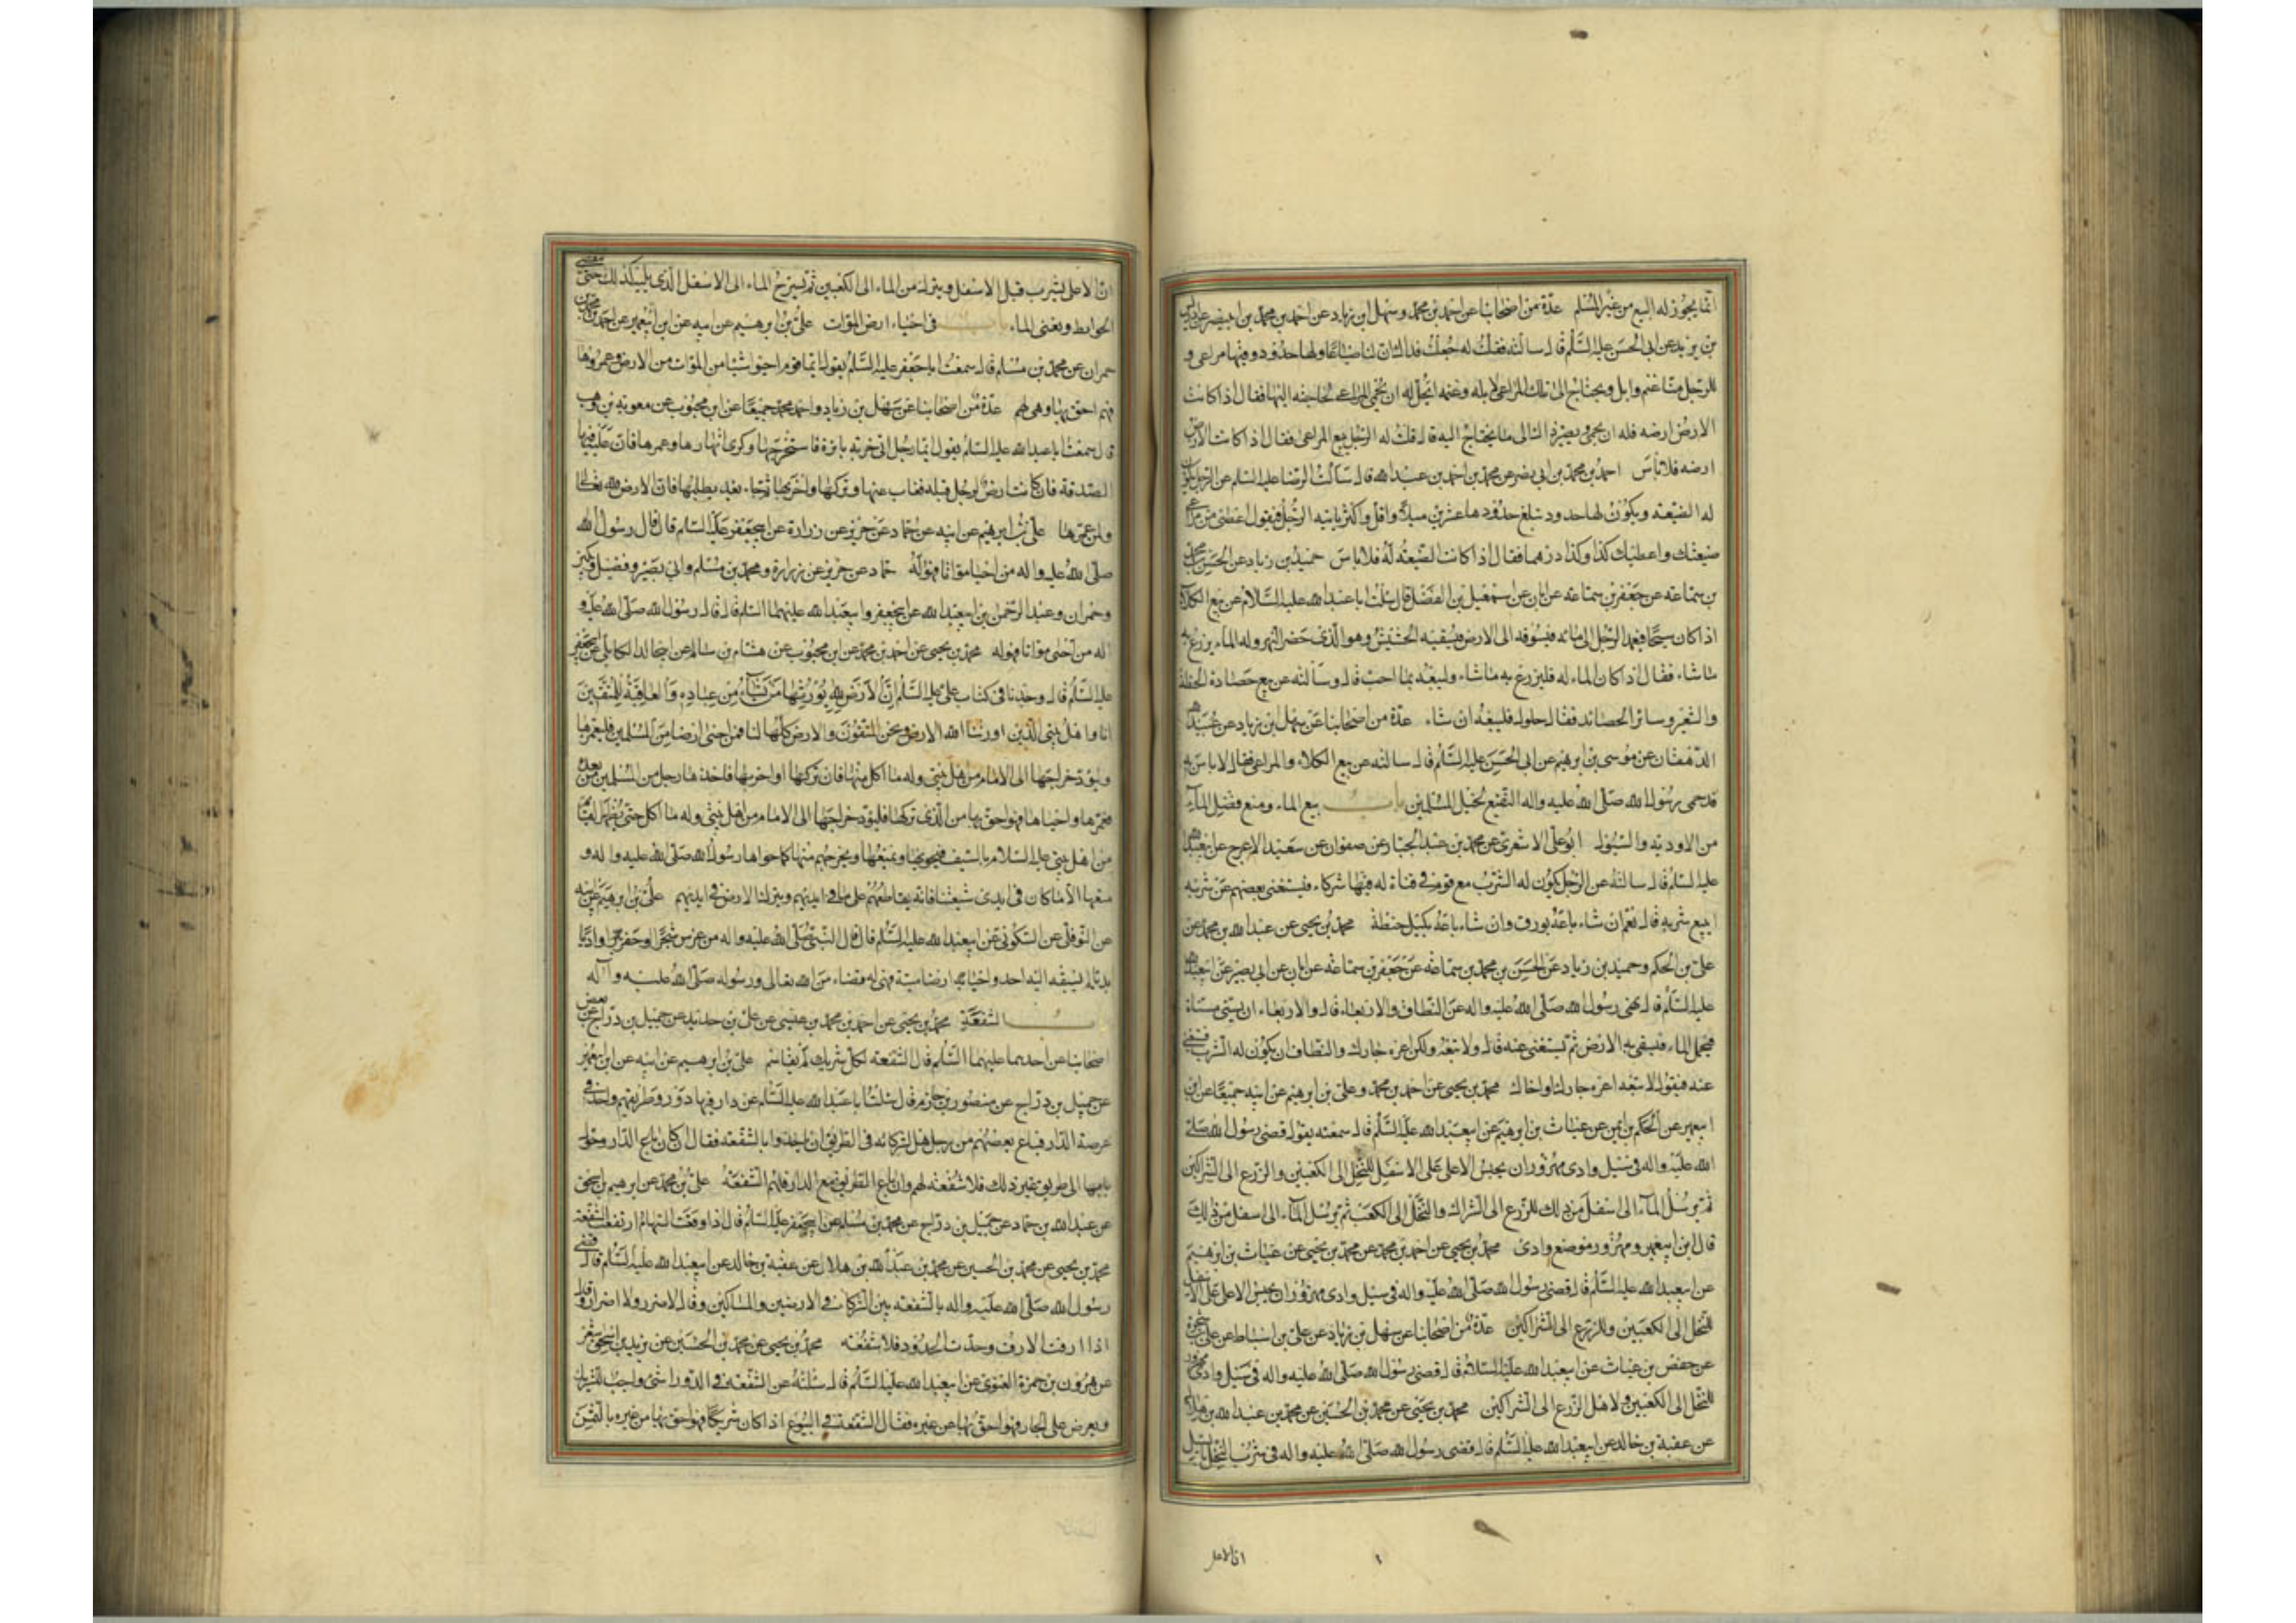 انما يجوز له البيع من غير المسلم عدة من اصحابنا عن احمد بن محمد وسهل ابن زياد عن احمد بن محمد بن ابي نصر عن
بن يزيد عن ابي الحسن عليه السلم قال سالته فقلت له جعلت فداك ان لنا ضياعا ولها حدود وفيها مراعي و
للرجل منا غنم وابل ويحتاج الى تلك المراعي لابله وغنمه ايحل له ان يحمي المراعي لحاجته اليها فقال اذا كانت
الارض ارضه فله ان يحمي ويصير ذلك الى ما يحتاج اليه قال قلت له الرجل يبيع المراعي فقال اذا كانت الارض
ارضه فلا باس احمد بن محمد بن ابي نصر عن محمد بن احمد بن عبد الله قال سالت الرضا عليه السلم عن الرجل يكون
له الضيعة ويكون لها حدود تبلغ حدودها عشرين ميلا واقل واكثر ياتيه الرجل فيقول اعطني من مراعي
ضيعتك واعطيك كذا وكذا درهما فقال اذا كانت الضيعة له فلا باس حميد بن زياد عن الحسن بن محمد
بن سماعة عن جعفر بن سماعة عن ابان عن اسمعيل بن الفضل قال سئلت ابا عبد الله عليه السلام عن بيع الكلاء
اذا كان سيحا فيعمد الرجل الى مائه فيسوقه الى الارض فيسقيه الحشيش وهو الذي حضر النهر وله الماء يزرع به
ما شاء فقال اذا كان الماء له فليزرع به ما شاء وليبعه بما احب قال وسالته عن بيع حصادة الحنطة
والشعير وسائر الحصائد فقال حلول فليبعه ان شاء عدة من اصحابنا عن سهل بن زياد عن عبيد الله
الدهقان عن موسى بن ابرهيم عن ابي الحسن عليه السلم قال سالته عن بيع الكلاء والمراعي فقال لا باس به
قد حمى رسول الله صلى الله عليه واله النقيع لخيل المسلمين باب بيع الماء ومنع فضل الماء
من الاودية والسيول ابو علي الاشعري عن محمد بن عبد الجبار عن صفوان عن سعيد الاعرج عن ابيعبد الله
عليه السلم قال سالته عن الرجل يكون له الشرب مع قوم في قناة له فيها شركاء فيستغني بعضهم عن شربه
ايبيع شربه قال نعم ان شاء باعه بورق وان شاء باعه بكيل حنطة محمد بن يحيى عن عبد الله بن محمد عن
علي بن الحكم وحميد بن زياد عن الحسن بن محمد بن سماعة عن جعفر بن سماعة عن ابان عن ابي بصير عن ابيعبد الله
عليه السلم قال نهى رسول الله صلى الله عليه واله عن النطاف والاربعاء قال والاربعاء ان يسنى مسناة
فيحمل الماء فيسقى به الارض ثم يستغني عنه قال ولا تبعه ولكن اعره جارك والنطاف ان يكون له الشرب فيستغني
عنه فيقول لا تبعه اعره جارك او اخاك محمد بن يحيى عن احمد بن محمد وعلي بن ابرهيم عن ابيه جميعا عن ابن
ابيعمير عن الحكم بن ايمن عن غياث بن ابرهيم عن ابيعبد الله عليه السلم قال سمعته يقول قضى رسول الله صلى
الله عليه واله في سيل وادي مهزوران يحبس الاعلى على الاسفل للنخل الى الكعبين والزرع الى الشراكين
ثم يرسل الماء الى اسفل من ذلك للزرع الى الشراك والنخل الى الكعب ثم يرسل الماء الى اسفل من ذلك
قال ابن ابيعمير ومهزور موضع وادي محمد بن يحيى عن احمد بن محمد عن محمد بن يحيى عن غياث بن ابرهيم
عن ابيعبد الله عليه السلم قال قضى رسول الله صلى الله عليه واله في سيل وادي مهزوران يحبس الاعلى على الاسفل
للنخل الى الكعبين وللزرع الى الشراكين عدة من اصحابنا عن سهل بن زياد عن علي بن اسباط عن علي بن شجرة
عن حفص بن غياث عن ابيعبد الله عليه السلام قال قضى رسول الله صلى الله عليه واله في سيل وادي مهزور
للنخل الى الكعبين ولاهل الزرع الى الشراكين محمد بن يحيى عن محمد بن الحسين عن محمد بن عبد الله بن هلال
عن عقبة بن خالد عن ابيعبد الله عليه السلم قال قضى رسول الله صلى الله عليه واله في شرب النخل بالسيل
ان الاعلى
ان الاعلى يشرب قبل الاسفل ويترك من الماء الى الكعبين ثم يسرح الماء الى الاسفل الذي يليه كذلك حتى ينقضي
الحوايط ويفنى الماء باب في احياء ارض الموات علي بن ابرهيم عن ابيه عن ابن ابيعمير عن محمد بن
حمران عن محمد بن مسلم قال سمعت ابا جعفر عليه السلم يقول ايما قوم احيوا شيئا من الموات من الارض وعمروها
فهم احق بها وهي لهم عدة من اصحابنا عن سهل بن زياد واحمد بن محمد جميعا عن ابن محبوب عن معوية بن وهب
قال سمعت ابا عبد الله عليه السلم يقول ايما رجل اتى خربة بائرة فاستخرجها وكرى انهارها وعمرها فان عليه فيها
الصدقة فان كانت ارض لرجل قبله فغاب عنها وتركها واخربها ثم جاء بعد يطلبها فان الارض لله تعالى
ولمن عمرها علي بن ابرهيم عن ابيه عن حماد عن حريز عن زرارة عن ابيجعفر عليه السلم قال قال رسول الله
صلى الله عليه واله من احيا مواتا فهو له حماد عن حريز عن زرارة ومحمد بن مسلم وابي بصير وفضيل وبكير
وحمران وعبد الرحمن بن ابيعبد الله عن ابيجعفر وابيعبد الله عليهما السلم قال قال رسول الله صلى الله عليه و
اله من احيى مواتا فهو له محمد بن يحيى عن احمد بن محمد عن ابن محبوب عن هشام بن سالم عن ابيخالد الكابلي عن ابيجعفر
عليه السلم قال وجدنا في كتاب علي عليه السلم ان الارض لله يورثها من يشاء من عباده والعاقبة للمتقين
انا واهل بيتي الذين اورثنا الله الارض ونحن المتقون والارض كلها لنا فمن احيى ارضا من المسلمين فليعمرها
وليؤد خراجها الى الامام من اهل بيتي وله ما اكل منها فان تركها او اخربها فاخذها رجل من المسلمين من بعده
فعمرها واحياها فهو احق بها من الذي تركها فليؤد خراجها الى الامام من اهل بيتي وله ما اكل حتى يظهر القائم
من اهل بيتي عليه السلام بالسيف فيحويها ويمنعها ويخرجهم منها كما حواها رسول الله صلى الله عليه واله و
منعها الا ما كان في ايدي شيعتنا فانه يقاطعهم على ما في ايديهم ويترك الارض في ايديهم علي بن ابرهيم عن ابيه
عن النوفلي عن السكوني عن ابيعبد الله عليه السلم قال قال النبي صلى الله عليه واله من غرس شجرا او حفر واديا
بديا لم يسبقه اليه احد واحيا ارضا ميتة فهي له قضاء من الله تعالى ورسوله صلى الله عليه وآله
باب الشفعة محمد بن يحيى عن احمد بن محمد بن عيسى عن علي بن حديد عن جميل بن دراج عن بعض
اصحابنا عن احدهما عليهما السلم قال الشفعة لكل شريك لم تقاسم علي بن ابرهيم عن ابيه عن ابن ابيعمير
عن جميل بن دراج عن منصور بن حازم قال سئلت ابا عبد الله عليه السلم عن دار فيها دور وطريقهم واحد في
عرصة الدار فباع بعضهم من رجل هل لشركائه في الطريق ان ياخذوا بالشفعة فقال ان كان باع الدار وحول
بابها الى طريق غير ذلك فلا شفعة لهم وان باع الطريق مع الدار فلهم الشفعة علي بن محمد عن ابرهيم بن اسحق
عن عبد الله بن حماد عن جميل بن دراج عن محمد بن مسلم عن ابيجعفر عليه السلم قال اذا وقعت السهام ارتفعت الشفعة
محمد بن يحيى عن محمد بن الحسين عن محمد بن عبد الله بن هلال عن عقبة بن خالد عن ابيعبد الله عليه السلم قال قضى
رسول الله صلى الله عليه واله بالشفعة بين الشركاء في الارضين والمساكن وقال لا ضرر ولا اضرار وقال
اذا ارفت الارف وحدت الحدود فلا شفعة محمد بن يحيى عن محمد بن الحسين عن يزيد بن اسحق شعر
عن هرون بن حمزة الغنوي عن ابيعبد الله عليه السلم قال سئلته عن الشفعة في الدور اشيء واجب للشريك
ويعرض على الجار فهو احق بها من غيره فقال الشفعة في البيوع اذا كان شريكا فهو احق بها من غيره بالثمن